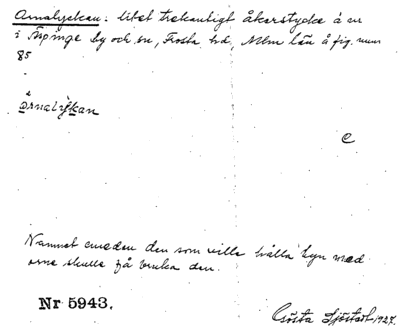 Ornalyckan: litet trekantigt åkerstycke å en
i Nöpinge by och sn, Frosta hd, Mlm län å fig. num
85
òrnalỳkan
C
Namnet emedan den som ville hålla byn med
orne skulle få bruka den.
Nr 5943.
Gösta Sjöstedt 1927.